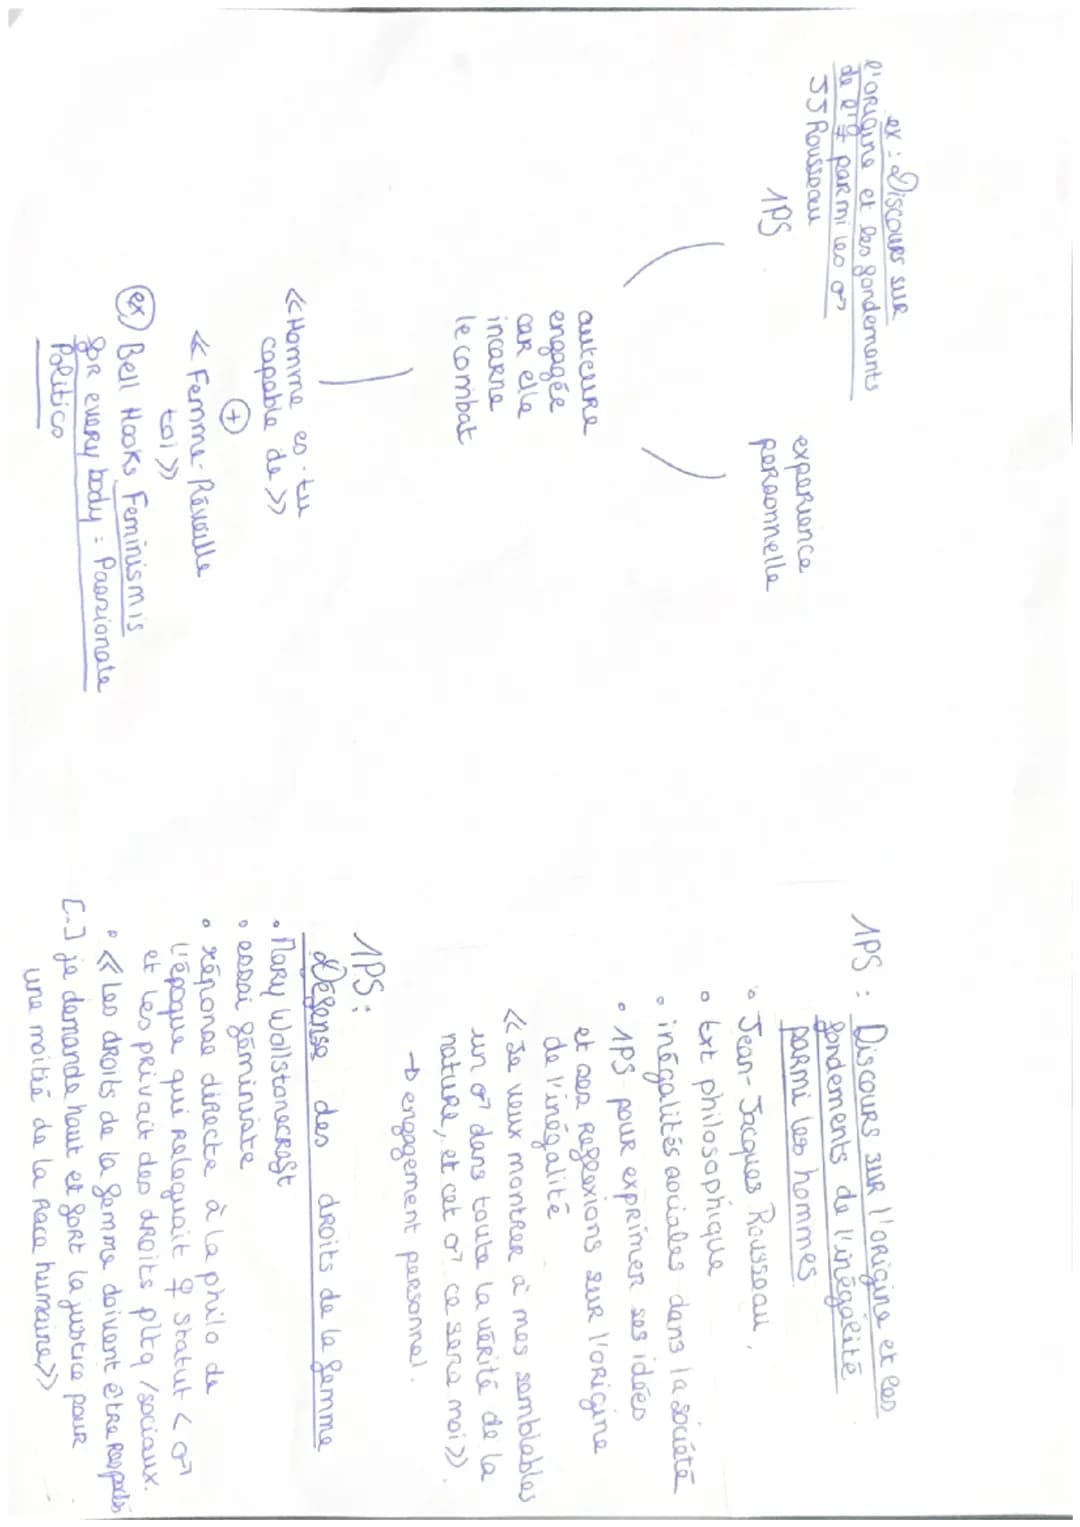 ex : Discours sur
l'origine et les fondements
de l'≠ parmi les ♂
JJ Rousseau
1PS
expérience
personnelle
auteure
engagée
car elle
incarne
le combat
« Homme es-tu
capable de »
+
« Femme-Réveille
toi »
ex Bell Hooks Feminism is
for every body : Passionate
Politics
1PS : Discours sur l'origine et les
fondements de l'inégalité
parmi les hommes
• Jean-Jacques Rousseau,
• txt philosophique
• inégalités sociales dans la société
• 1PS pour exprimer ses idées
et ses reflexions sur l'origine
de l'inégalité
« Je veux montrer à mes semblables
un ♂ dans toute la vérité de la
nature, et cet ♂ ce sera moi ».
→ engagement personnel.
1PS :
Défense des droits de la femme
• Mary Wollstonecraft
• essai féministe
• réponse directe à la philo de
l'époque qui releguait ♀ statut < ♂
et les privait des droits pltq / sociaux.
• « Les droits de la femme doivent être respectés
[...] je demande haut et fort la justice pour
une moitié de la race humaine »